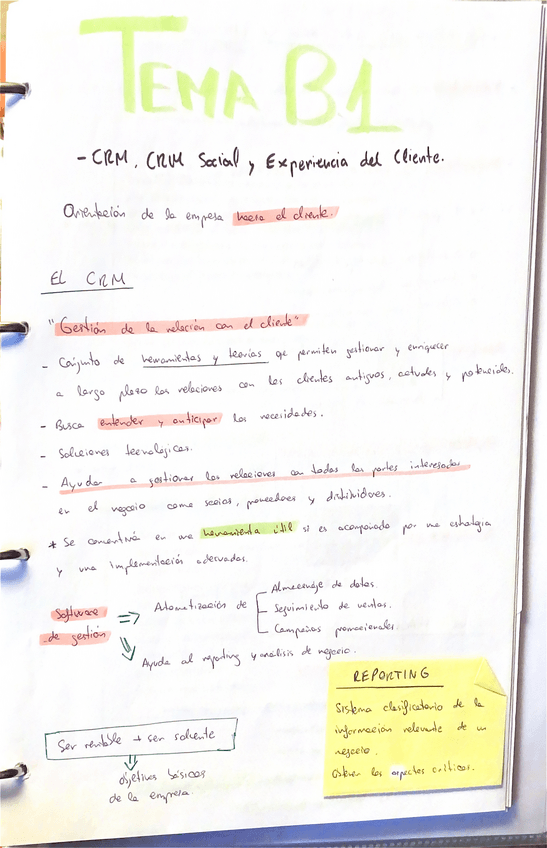 TEMA B.1
- CRM, CRM Social y Experiencia del Cliente.
Orientación de la empresa hacia el cliente.
EL CRM
"Gestión de la relación con el cliente"
- Conjunto de herramientas y teorías qe permiten gestionar y enriquecer
a largo plazo las relaciones con los clientes antiguos, actuales y potenciales.
- Busca entender y anticipar las necesidades.
- Soluciones tecnológicas.
- Ayudar a gestionar las relaciones con todas las partes interesadas
en el negocio como socios, proveedores y distribuidores.
* Se convertirá en una herramienta útil si es acompañado por una estrategia
y una implementación adecuadas.
Software
de gestión
⇒ Automatización de
Almacenaje de datos.
Seguimiento de ventas.
Campañas promocionales.
Ayuda al reporting y análisis de negocio.
REPORTING
Sistema clasificatorio de la
información relevante de un
negocio.
Obtener los aspectos críticos.
Ser rentable + ser solvente
objetivos básicos
de la empresa.